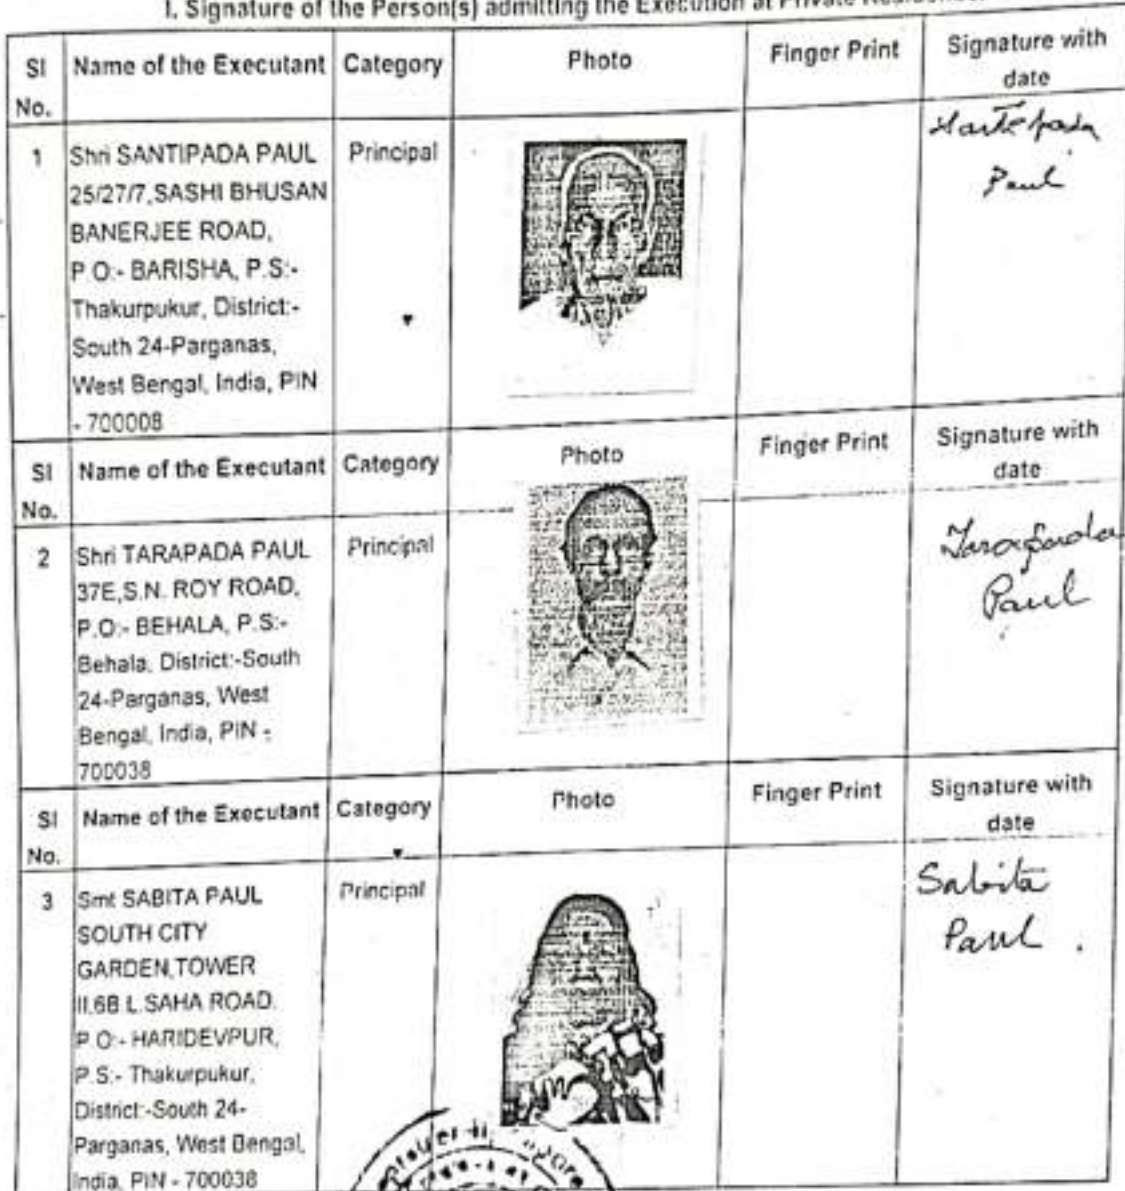 I. Signature of the Person(s) admitting the Execution at Private Residence.
Sl No. Name of the Executant Category Photo Finger Print Signature with date
1 Shri SANTIPADA PAUL Principal
25/27/7,SASHI BHUSAN
BANERJEE ROAD,
P.O:- BARISHA, P.S:-
Thakurpukur, District:-
South 24-Parganas,
West Bengal, India, PIN
- 700008
Paul
Sl No. Name of the Executant Category Photo Finger Print Signature with date
2 Shri TARAPADA PAUL Principal
37E,S.N. ROY ROAD,
P.O:- BEHALA, P.S:-
Behala, District:-South
24-Parganas, West
Bengal, India, PIN -
700038
Tarapada
Paul
Sl No. Name of the Executant Category Photo Finger Print Signature with date
3 Smt SABITA PAUL Principal
SOUTH CITY
GARDEN,TOWER
II.6B L.SAHA ROAD.
P.O:- HARIDEVPUR,
P.S:- Thakurpukur,
District:-South 24-
Parganas, West Bengal,
India, PIN - 700038
Sabita
Paul